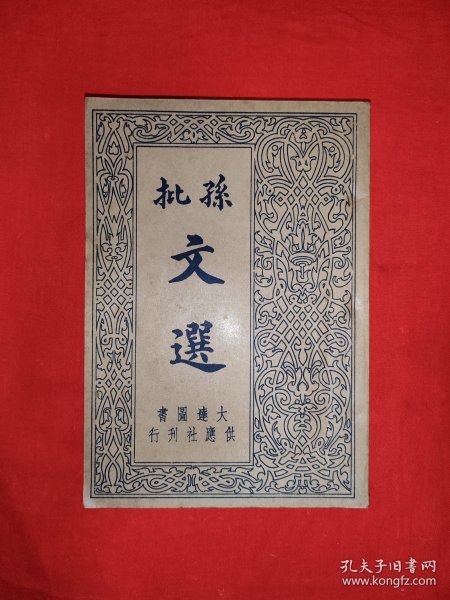 孫批
文
選
大達圖書
供應社刊行
孔夫子旧书网
www.kongfz.com